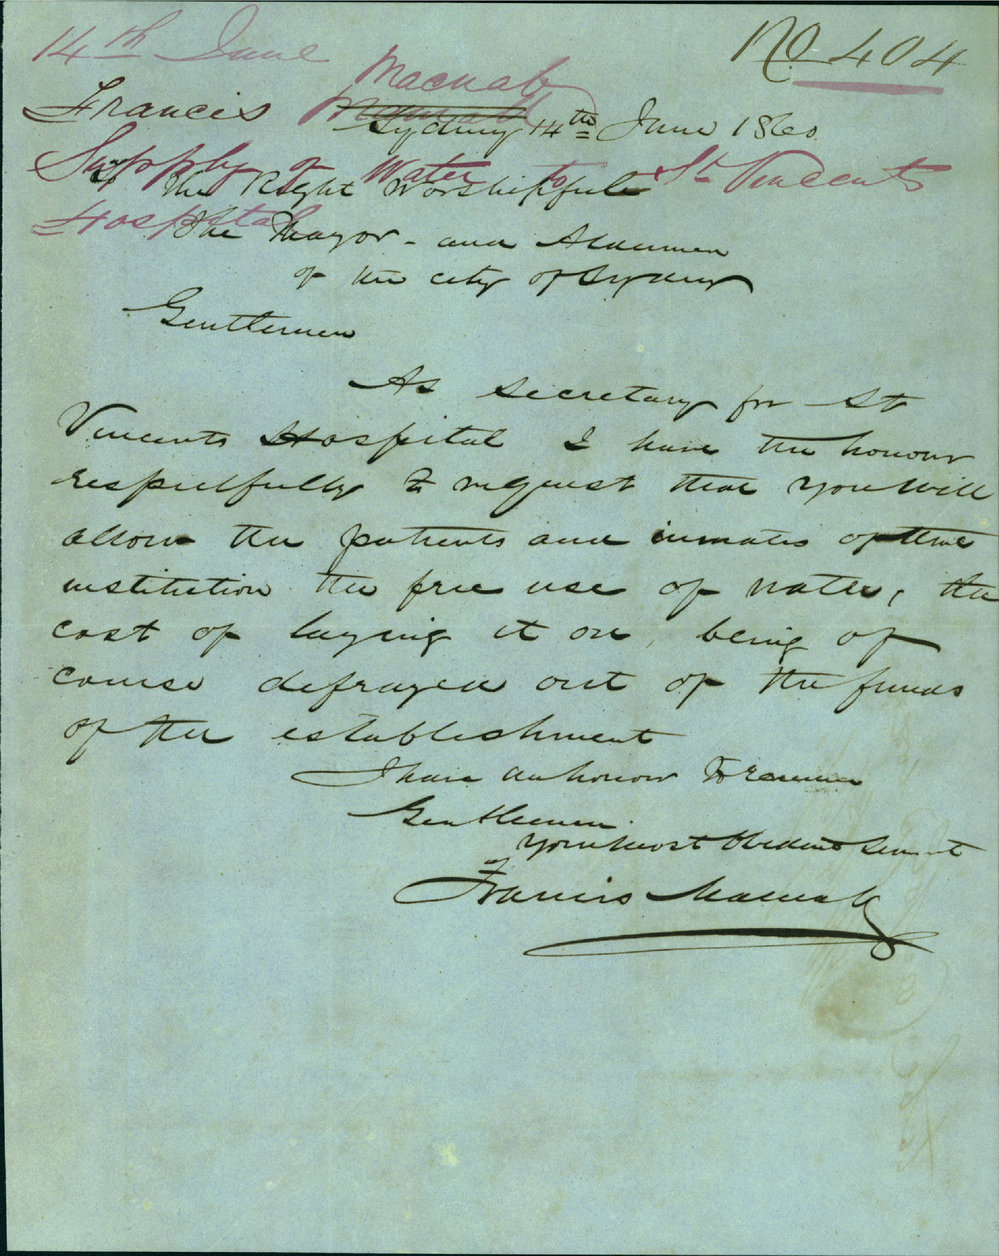 No 404
14th June
Macnab
Francis
Sydney 14th June 1860
Supply of Water to St Vincents
Hospital
To the Right Worshipful
The Mayor - and Aldermen
of the city of Sydney
Gentlemen
As Secretary for St
Vincents Hospital I have the honour
respectfully to request that you will
allow the patients and inmates of that
institution the free use of water, the
cost of laying it on, being of
course defrayed out of the funds
of the establishment
I have the honour to remain
Gentlemen
Your most Obedient Servant
Francis Macnab